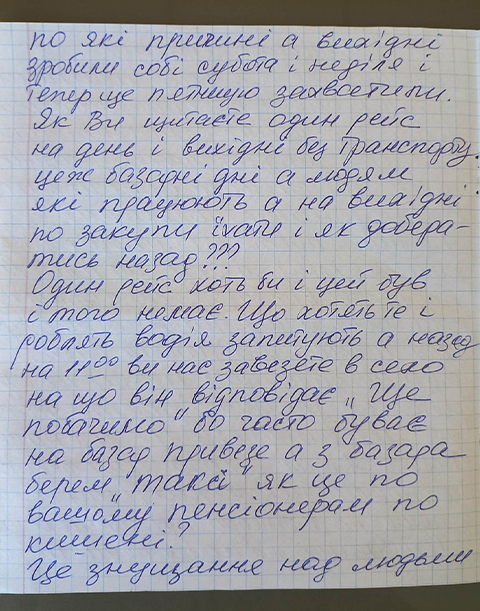 по які причині а вихідні
зробили собі субота і неділя і
тепер ще пятницю захватили.
Як Ви щитаєте один рейс
на день і вихідні без транспорту.
цеж базарні дні а людям
які працюють а на вихідні
по закупи їхати і як добера-
тись назад???
Один рейс хоть би і цей був
і того немає. Що хотять те і
роблять водія запитують а назад
на 11⁰⁰ ви нас завезете в село
на що він відповідає „Ще
побачимо" бо часто буває
на базар привезе а з базара
берем „таксі" як це по
вашому пенсіонерам по
кишені?
Це знущання над людьми